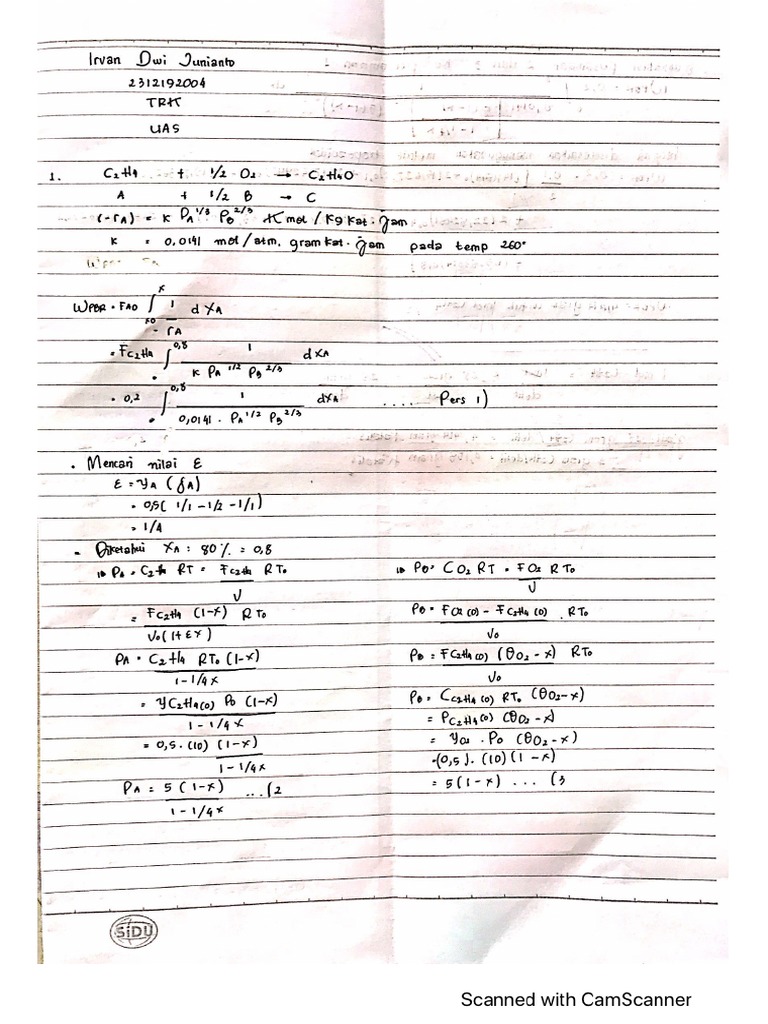 Irvan Dwi Junianto
2312192004
TRK
UAS
1. C2H4 + 1/2 O2 → C2H4O
A + 1/2 B → C
(-rA) = k PA^1/3 PB^2/3 K mol / kg kat. jam
k = 0,0141 mol/atm. gram kat. jam pada temp 260°
WPBR = FA0 ∫x0^x 1/-rA d XA
= FC2H4 ∫0^0,8 1/(k PA^1/2 PB^2/3) d XA
= 0,2 ∫0^0,8 1/(0,0141 . PA^1/2 PB^2/3) dXA .... Pers 1)
• Mencari nilai ε
ε = yA (δA)
= 0,5( 1/1 - 1/2 - 1/1)
= 1/4
• Diketahui XA : 80 % = 0,8
PA = C2H4 RT = FC2H4/υ RT0
= FC2H4 (1-x)/υ0(1+εx) RT0
PA = C2H4 RT0 (1-x)/1-1/4x
= yC2H4(0) P0 (1-x)/1-1/4x
= 0,5.(10) (1-x)/1-1/4x
PA = 5 (1-x)/1-1/4x ...(2
PB = CO2 RT = FO2/υ RT0
PB = FO2(0) - FC2H4(0)/υ0 . RT0
PB = FC2H4(0) (θO2-x)/υ0 RT0
PB = CC2H4(0) RT0 (θO2-x)
= PC2H4(0) (θO2-x)
= y0 . P0 (θO2-x)
=(0,5). (10)(1-x)
= 5(1-x) ... (3
SiDU
Scanned with CamScanner